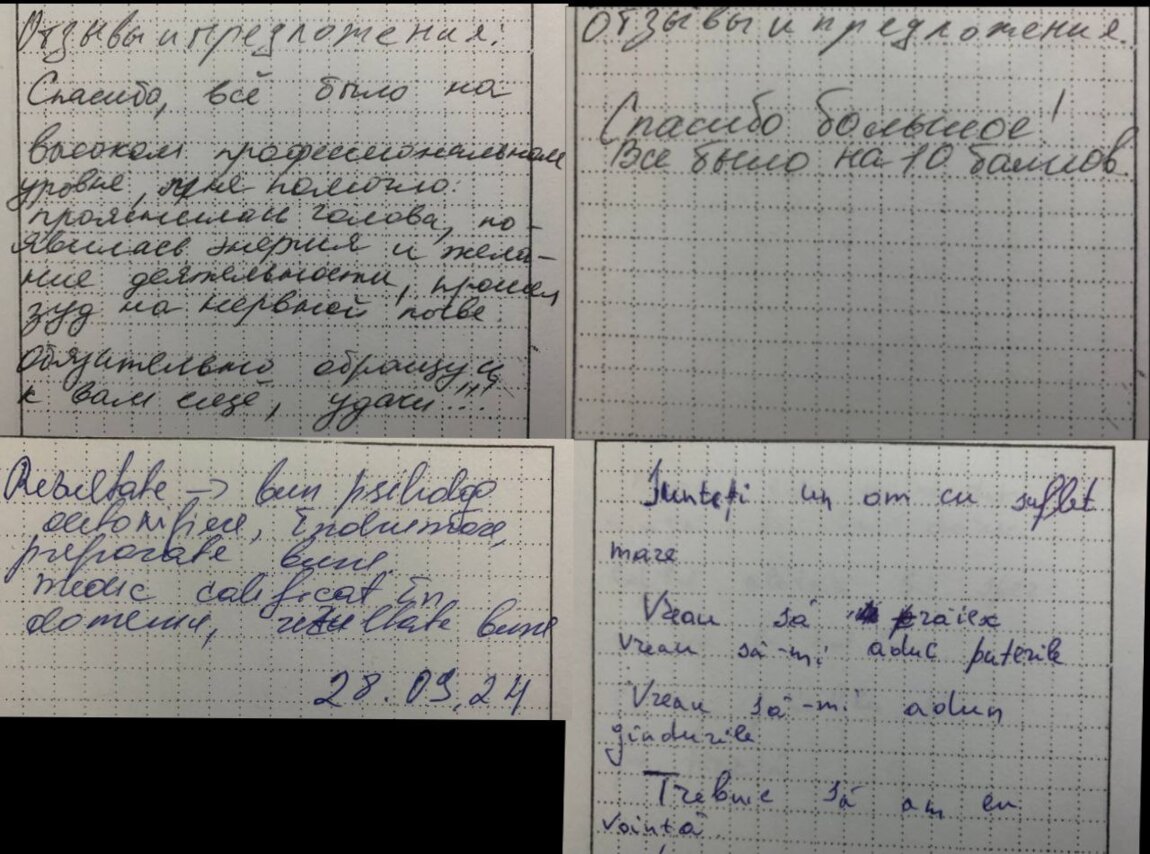 Отзывы и предложения:
Спасибо, всё было на
высоком профессиональном
уровне, мне помогло:
прояснилась голова, по-
явилась энергия и жела-
ние деятельности, прошел
зуд на нервной почве
Обязательно обращусь
к вам ещё, удачи!!!
Отзывы и предложения.
Спасибо большое!
Все было на 10 баллов.
Rezultate → bun psiholog
detoxifiere, îndrumare,
preparate bune.
medic calificat în
domeniu, rezultate bune
28.09.24
Sunteți un om cu suflet
mare
Vreau să trăiesc
Vreau să-mi aduc puterile
Vreau să-mi adun
gîndurile
Trebuie să am eu
voință.